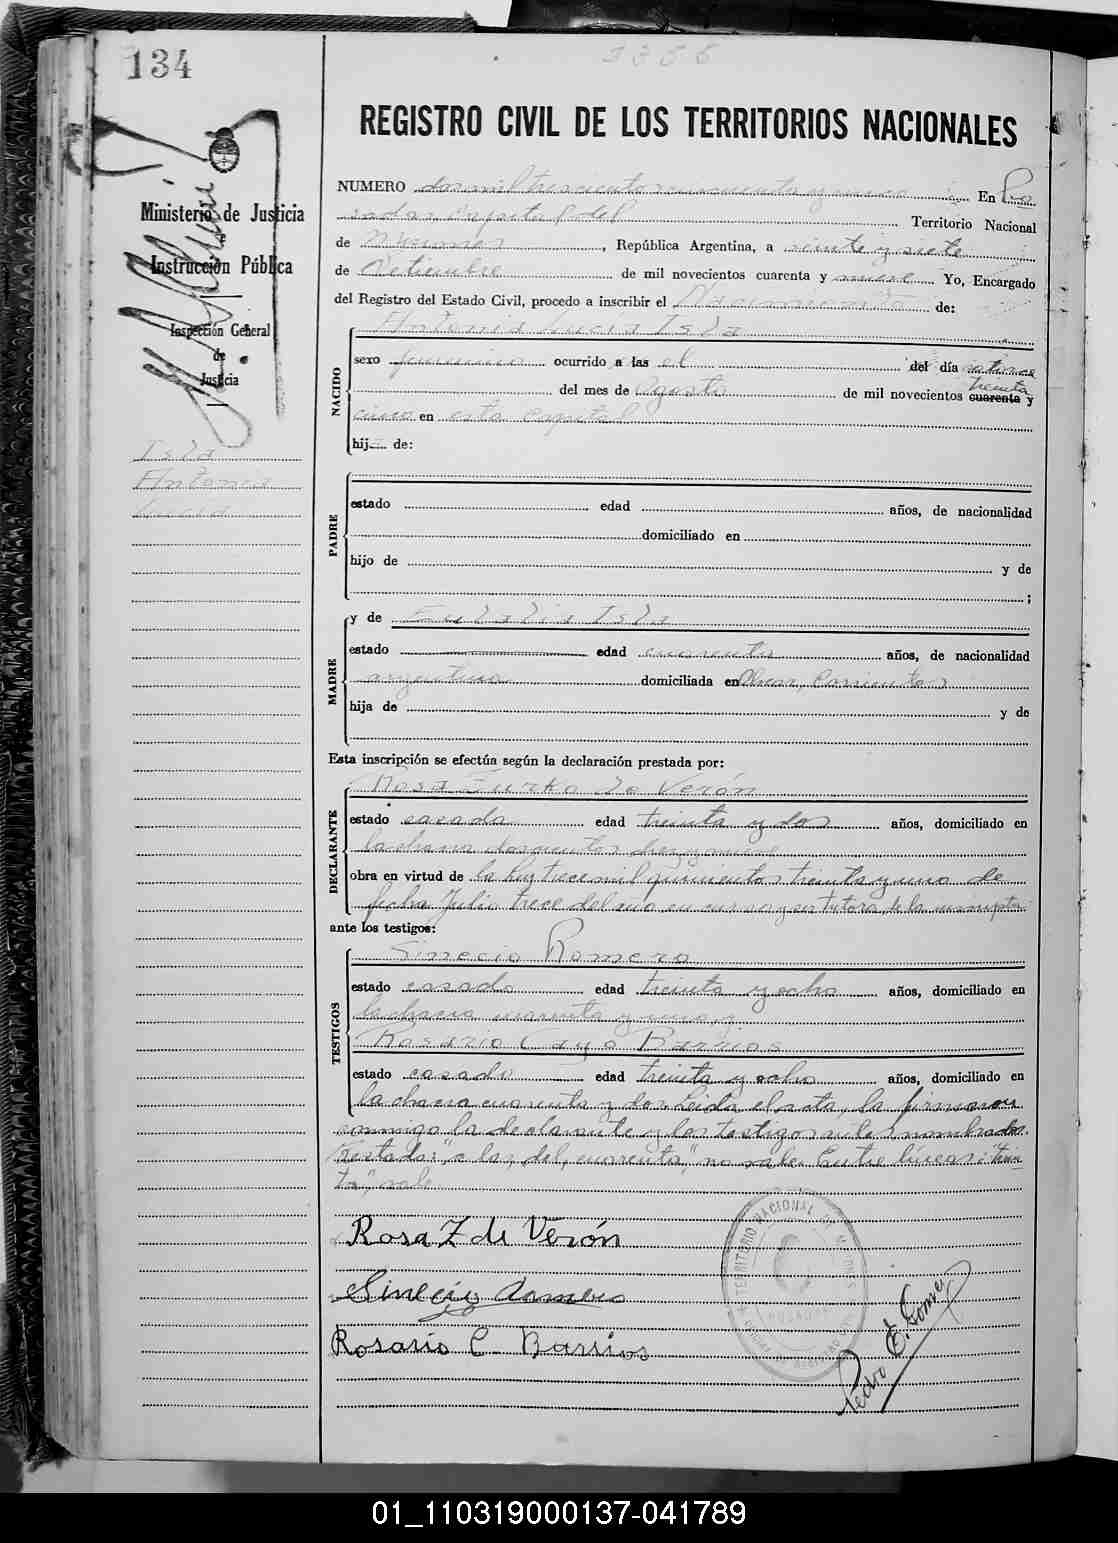 134
REGISTRO CIVIL DE LOS TERRITORIOS NACIONALES
Ministerio de Justicia
Instrucción Pública
Inspección General
de
Justicia
Isla
Antonia
Lucia
NUMERO dos mil trescientos cincuenta y cinco En Po
sadas capital del Territorio Nacional
de Misiones, República Argentina, a veinte y siete
de Setiembre de mil novecientos cuarenta y nueve Yo, Encargado
del Registro del Estado Civil, procedo a inscribir el Nacimiento de:
NACIDO
Antonia Lucia Isla
sexo femenino ocurrido a las el del día catorce
treinta
del mes de Agosto de mil novecientos cuarenta y
cinco en esta capital
hij de:
PADRE
estado edad años, de nacionalidad
domiciliado en
hijo de y de
;
MADRE
y de Eulalia Isla
estado edad cuarenta años, de nacionalidad
argentina domiciliada en Alvear, Corrientes
hija de y de
Esta inscripción se efectúa según la declaración prestada por:
DECLARANTE
Rosa Zurko de Verón
estado casada edad treinta y dos años, domiciliado en
la chacra doscientos diez y nueve
obra en virtud de la ley trece mil quinientos treinta y uno de
fecha Julio trece del año en curso y es tutora de la inscripta
ante los testigos:
TESTIGOS
Sinecio Romero
estado casado edad treinta y ocho años, domiciliado en
la chacra cuarenta y uno y
Rosario Cayo Barrios
estado casado edad treinta y ocho años, domiciliado en
la chacra cuarenta y dos Leida el acta, la firmaron
conmigo la declarante y los testigos nombrados.
Testado: "a las, del, cuarenta," no vale. Entre líneas: "trein
ta", vale
Rosa Z de Verón
Sinecio Romero
Rosario C. Barrios
TERRITORIO NACIONAL DE MISIONES
POSADAS
Pedro E. Gomez
01_110319000137-041789